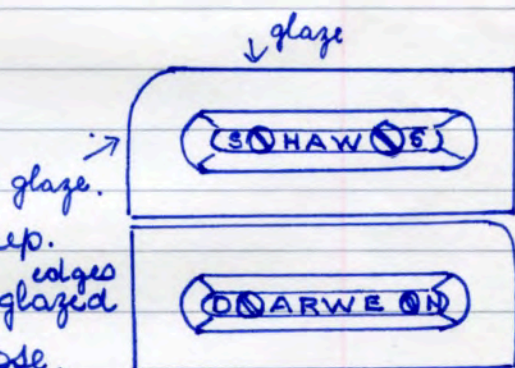 glaze
S HAW S
glaze.
ep.
edges
glazed
D ARWE N
ose.